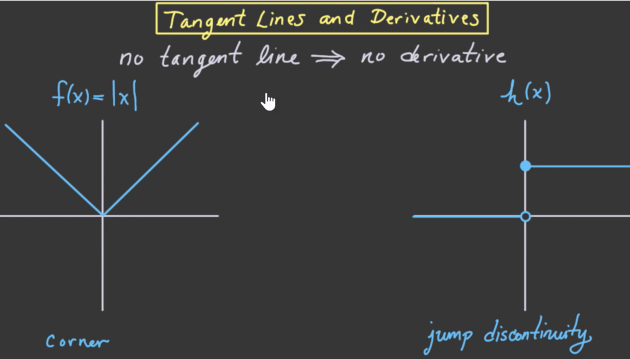 Tangent Lines and Derivatives
no tangent line ⟹ no derivative
f(x)=|x|
h(x)
corner
jump discontinuity